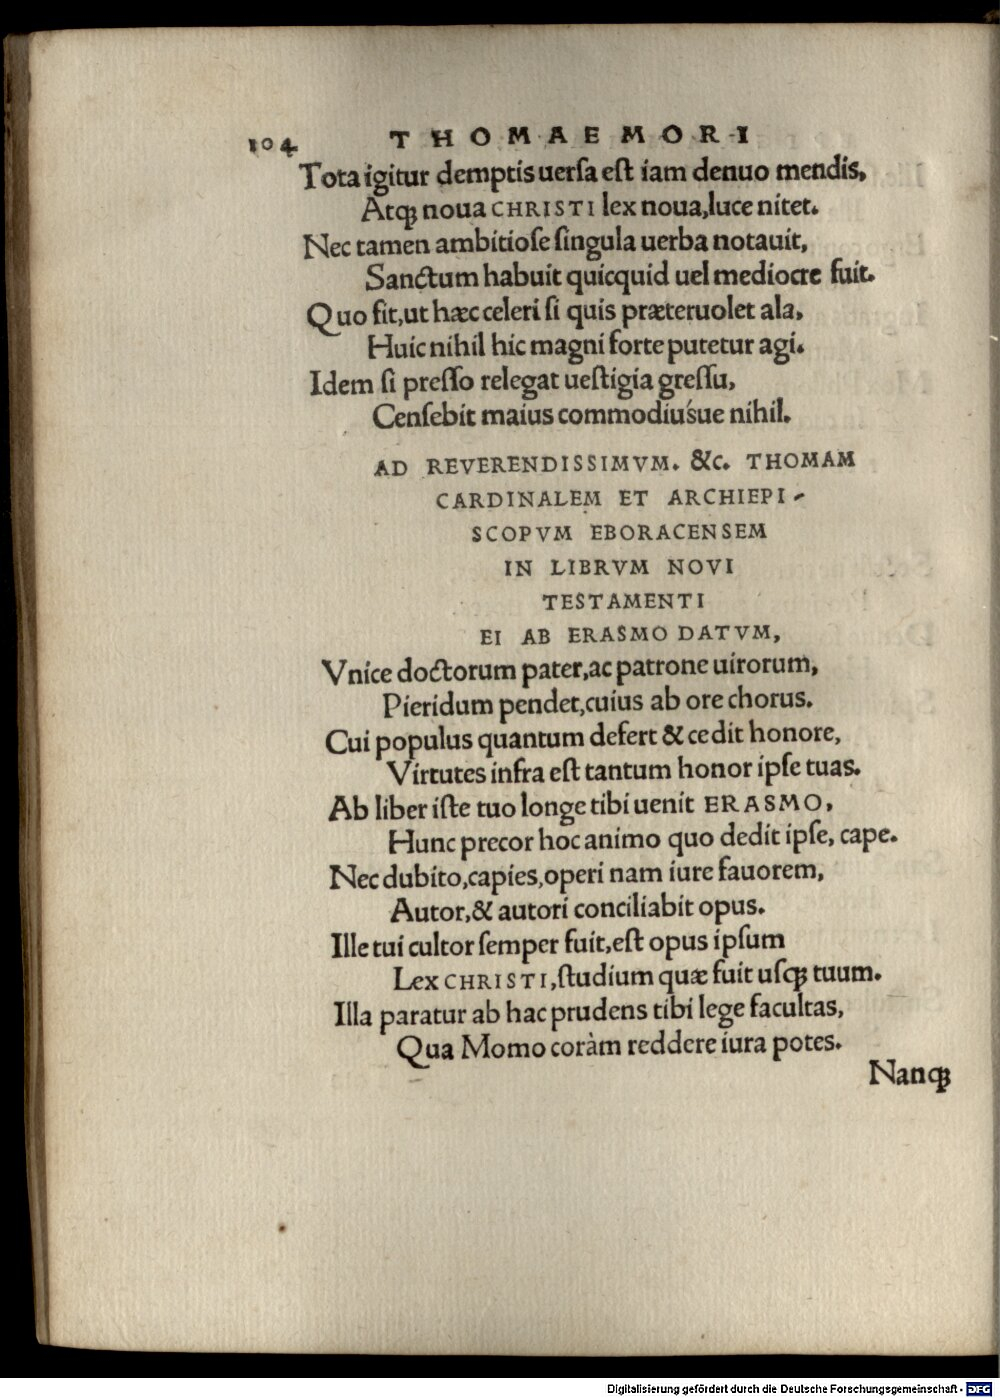 104 THOMAE MORI
Tota igitur demptis uersa est iam denuo mendis,
Atqꝫ noua CHRISTI lex noua, luce nitet.
Nec tamen ambitiose singula uerba notauit,
Sanctum habuit quicquid uel mediocre fuit.
Quo fit, ut hæc celeri si quis præteruolet ala,
Huic nihil hic magni forte putetur agi.
Idem si presso relegat uestigia gressu,
Censebit maius commodiúsue nihil.
AD REVERENDISSIMVM. &c. THOMAM
CARDINALEM ET ARCHIEPI-
SCOPVM EBORACENSEM
IN LIBRVM NOVI
TESTAMENTI
EI AB ERASMO DATVM,
Vnice doctorum pater, ac patrone uirorum,
Pieridum pendet, cuius ab ore chorus.
Cui populus quantum defert & cedit honore,
Virtutes infra est tantum honor ipse tuas.
Ab liber iste tuo longe tibi uenit ERASMO,
Hunc precor hoc animo quo dedit ipse, cape.
Nec dubito, capies, operi nam iure fauorem,
Autor, & autori conciliabit opus.
Ille tui cultor semper fuit, est opus ipsum
Lex CHRISTI, studium quæ fuit usqꝫ tuum.
Illa paratur ab hac prudens tibi lege facultas,
Qua Momo coràm reddere iura potes.
Nanqꝫ
Digitalisierung gefördert durch die Deutsche Forschungsgemeinschaft - DFG